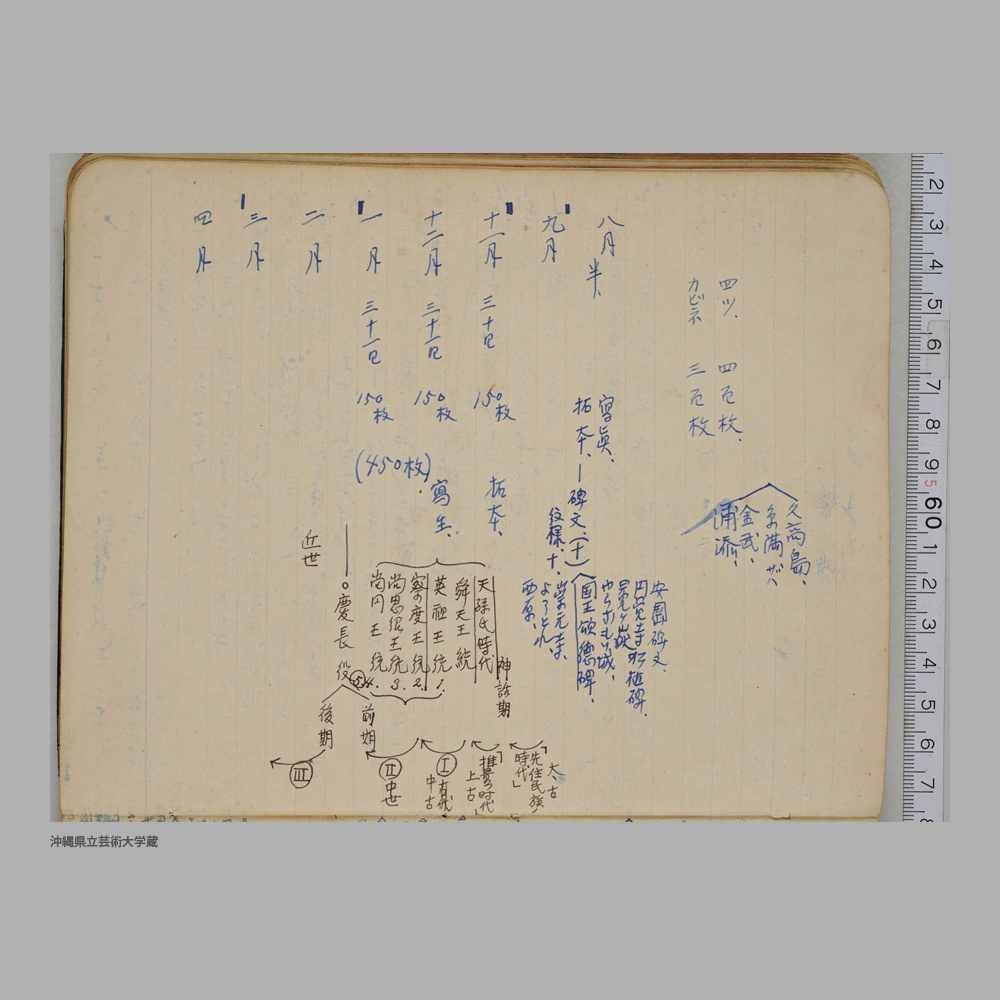 四ツ、 四百枚、
カビネ 三百枚
久高島、
糸満ザ、
金武、
浦添、
八月半、
九月
十一月 三十円 150枚
十二月 三十円 150枚
一月 三十円 150枚
二月
三月
四月
(450枚)
寫眞、
拓本、—碑文、(十)
紋様、十、
拓本、
寫生、
安國碑文、
円覚寺松植碑、
国王頌徳碑、
崇元寺、
ようどれ
西原、
天孫氏時代
神話期
舜天王統
英祖王統 1.
察度王統 2.
尚思紹王統 3.
尚円王統 4.
⑤
慶長役
近世
前期
後期
太古
「先住民族時代」
「推量の時代」
上古
Ⅰ 古代
中古
Ⅱ 中世
Ⅲ
2 3 4 5 6 7 8 9 5 60 1 2 3 4 5 6 7 8
沖縄県立芸術大学蔵